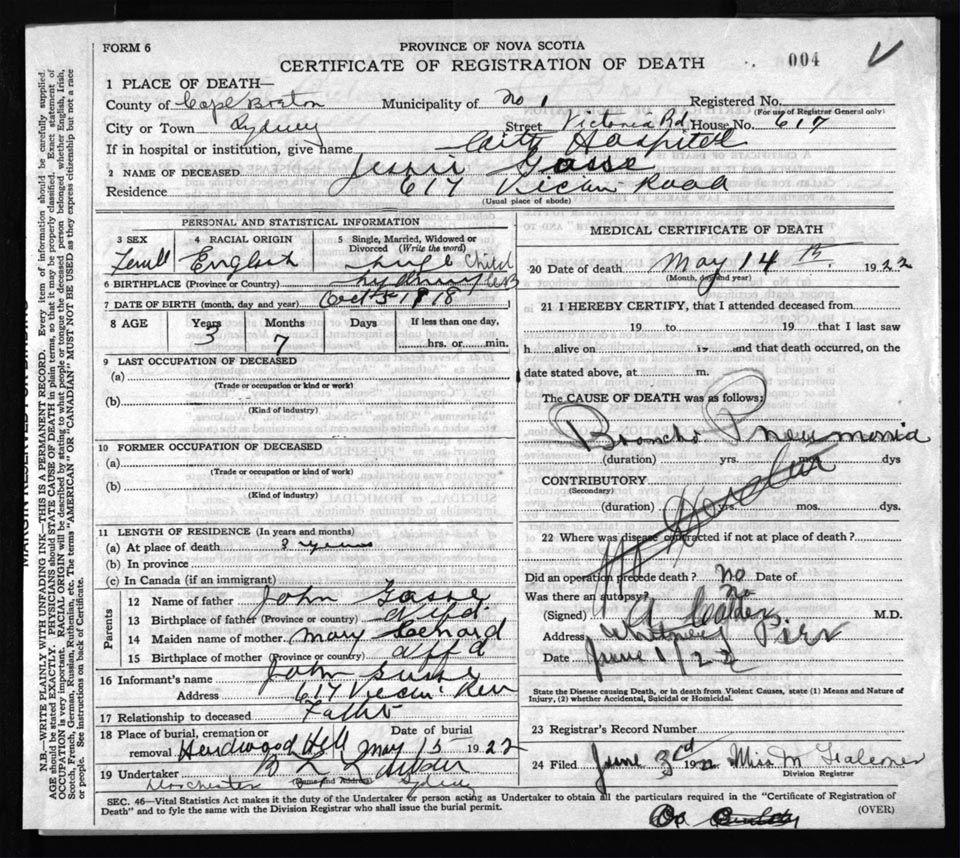 FORM 6
PROVINCE OF NOVA SCOTIA
CERTIFICATE OF REGISTRATION OF DEATH
004
1 PLACE OF DEATH—
County of Cape Breton Municipality of No 1 Registered No.
(For use of Registrar General only)
City or Town Sydney Street Victoria Rd House No. 617
If in hospital or institution, give name City Hospital
2 NAME OF DECEASED Jessie Gosse
Residence 617 Road
(Usual place of abode)
PERSONAL AND STATISTICAL INFORMATION
3 SEX
4 RACIAL ORIGIN English
5 Single, Married, Widowed or Divorced (Write the word) Child
6 BIRTHPLACE (Province or Country) Sydney CB
7 DATE OF BIRTH (month, day and year) Oct 1918
8 AGE Years 3 Months 7 Days If less than one day, hrs. or min.
9 LAST OCCUPATION OF DECEASED
(a)
(Trade or occupation or kind or work)
(b)
(Kind of industry)
10 FORMER OCCUPATION OF DECEASED
(a)
(Trade or occupation or kind of work)
(b)
(Kind of industry)
11 LENGTH OF RESIDENCE (In years and months)
(a) At place of death 3 years
(b) In province
(c) In Canada (if an immigrant)
Parents
12 Name of father John
13 Birthplace of father (Province or country)
14 Maiden name of mother Mary
15 Birthplace of mother (Province or country)
16 Informant's name John
Address 617
17 Relationship to deceased Father
18 Place of burial, cremation or removal Hardwood Hill Date of burial May 15 1922
19 Undertaker
(Name and Address)
Dorchester St Sydney
MEDICAL CERTIFICATE OF DEATH
20 Date of death May 14th 1922
(Month, day and year)
21 I HEREBY CERTIFY, that I attended deceased from
19 to 19 that I last saw
h alive on 19 and that death occurred, on the
date stated above, at m.
The CAUSE OF DEATH was as follows:
Broncho Pneumonia
(duration) yrs. mos. dys
CONTRIBUTORY
(Secondary)
(duration) yrs. mos. dys.
22 Where was disease contracted if not at place of death?
Did an operation precede death? no Date of
Was there an autopsy? no
(Signed) Calder M.D.
Address Whitney Pier
Date June 1/22
State the Disease causing Death, or in death from Violent Causes, state (1) Means and Nature of
Injury, (2) whether Accidental, Suicidal or Homicidal.
23 Registrar's Record Number
24 Filed June 3rd 19 Miss M Falconer
Division Registrar
SEC. 46—Vital Statistics Act makes it the duty of the Undertaker or person acting as Undertaker to obtain all the particulars required in the "Certificate of Registration of
Death" and to fyle the same with the Division Registrar who shall issue the burial permit.
(OVER)
N.B.—WRITE PLAINLY WITH UNFADING INK—THIS IS A PERMANENT RECORD. Every item of information should be carefully supplied.
AGE should be stated EXACTLY. PHYSICIANS should STATE CAUSE OF DEATH in plain terms, so that it may be properly classified. Exact statement of
OCCUPATION is very important. RACIAL ORIGIN will be described by stating to what people or tongue the deceased person belonged whether English, Irish,
Scotch, French, German, Russian, Ruthenian, etc. The terms "AMERICAN" OR "CANADIAN" MUST NOT BE USED as they express citizenship but not a race
or people. See instructions on back of Certificate.